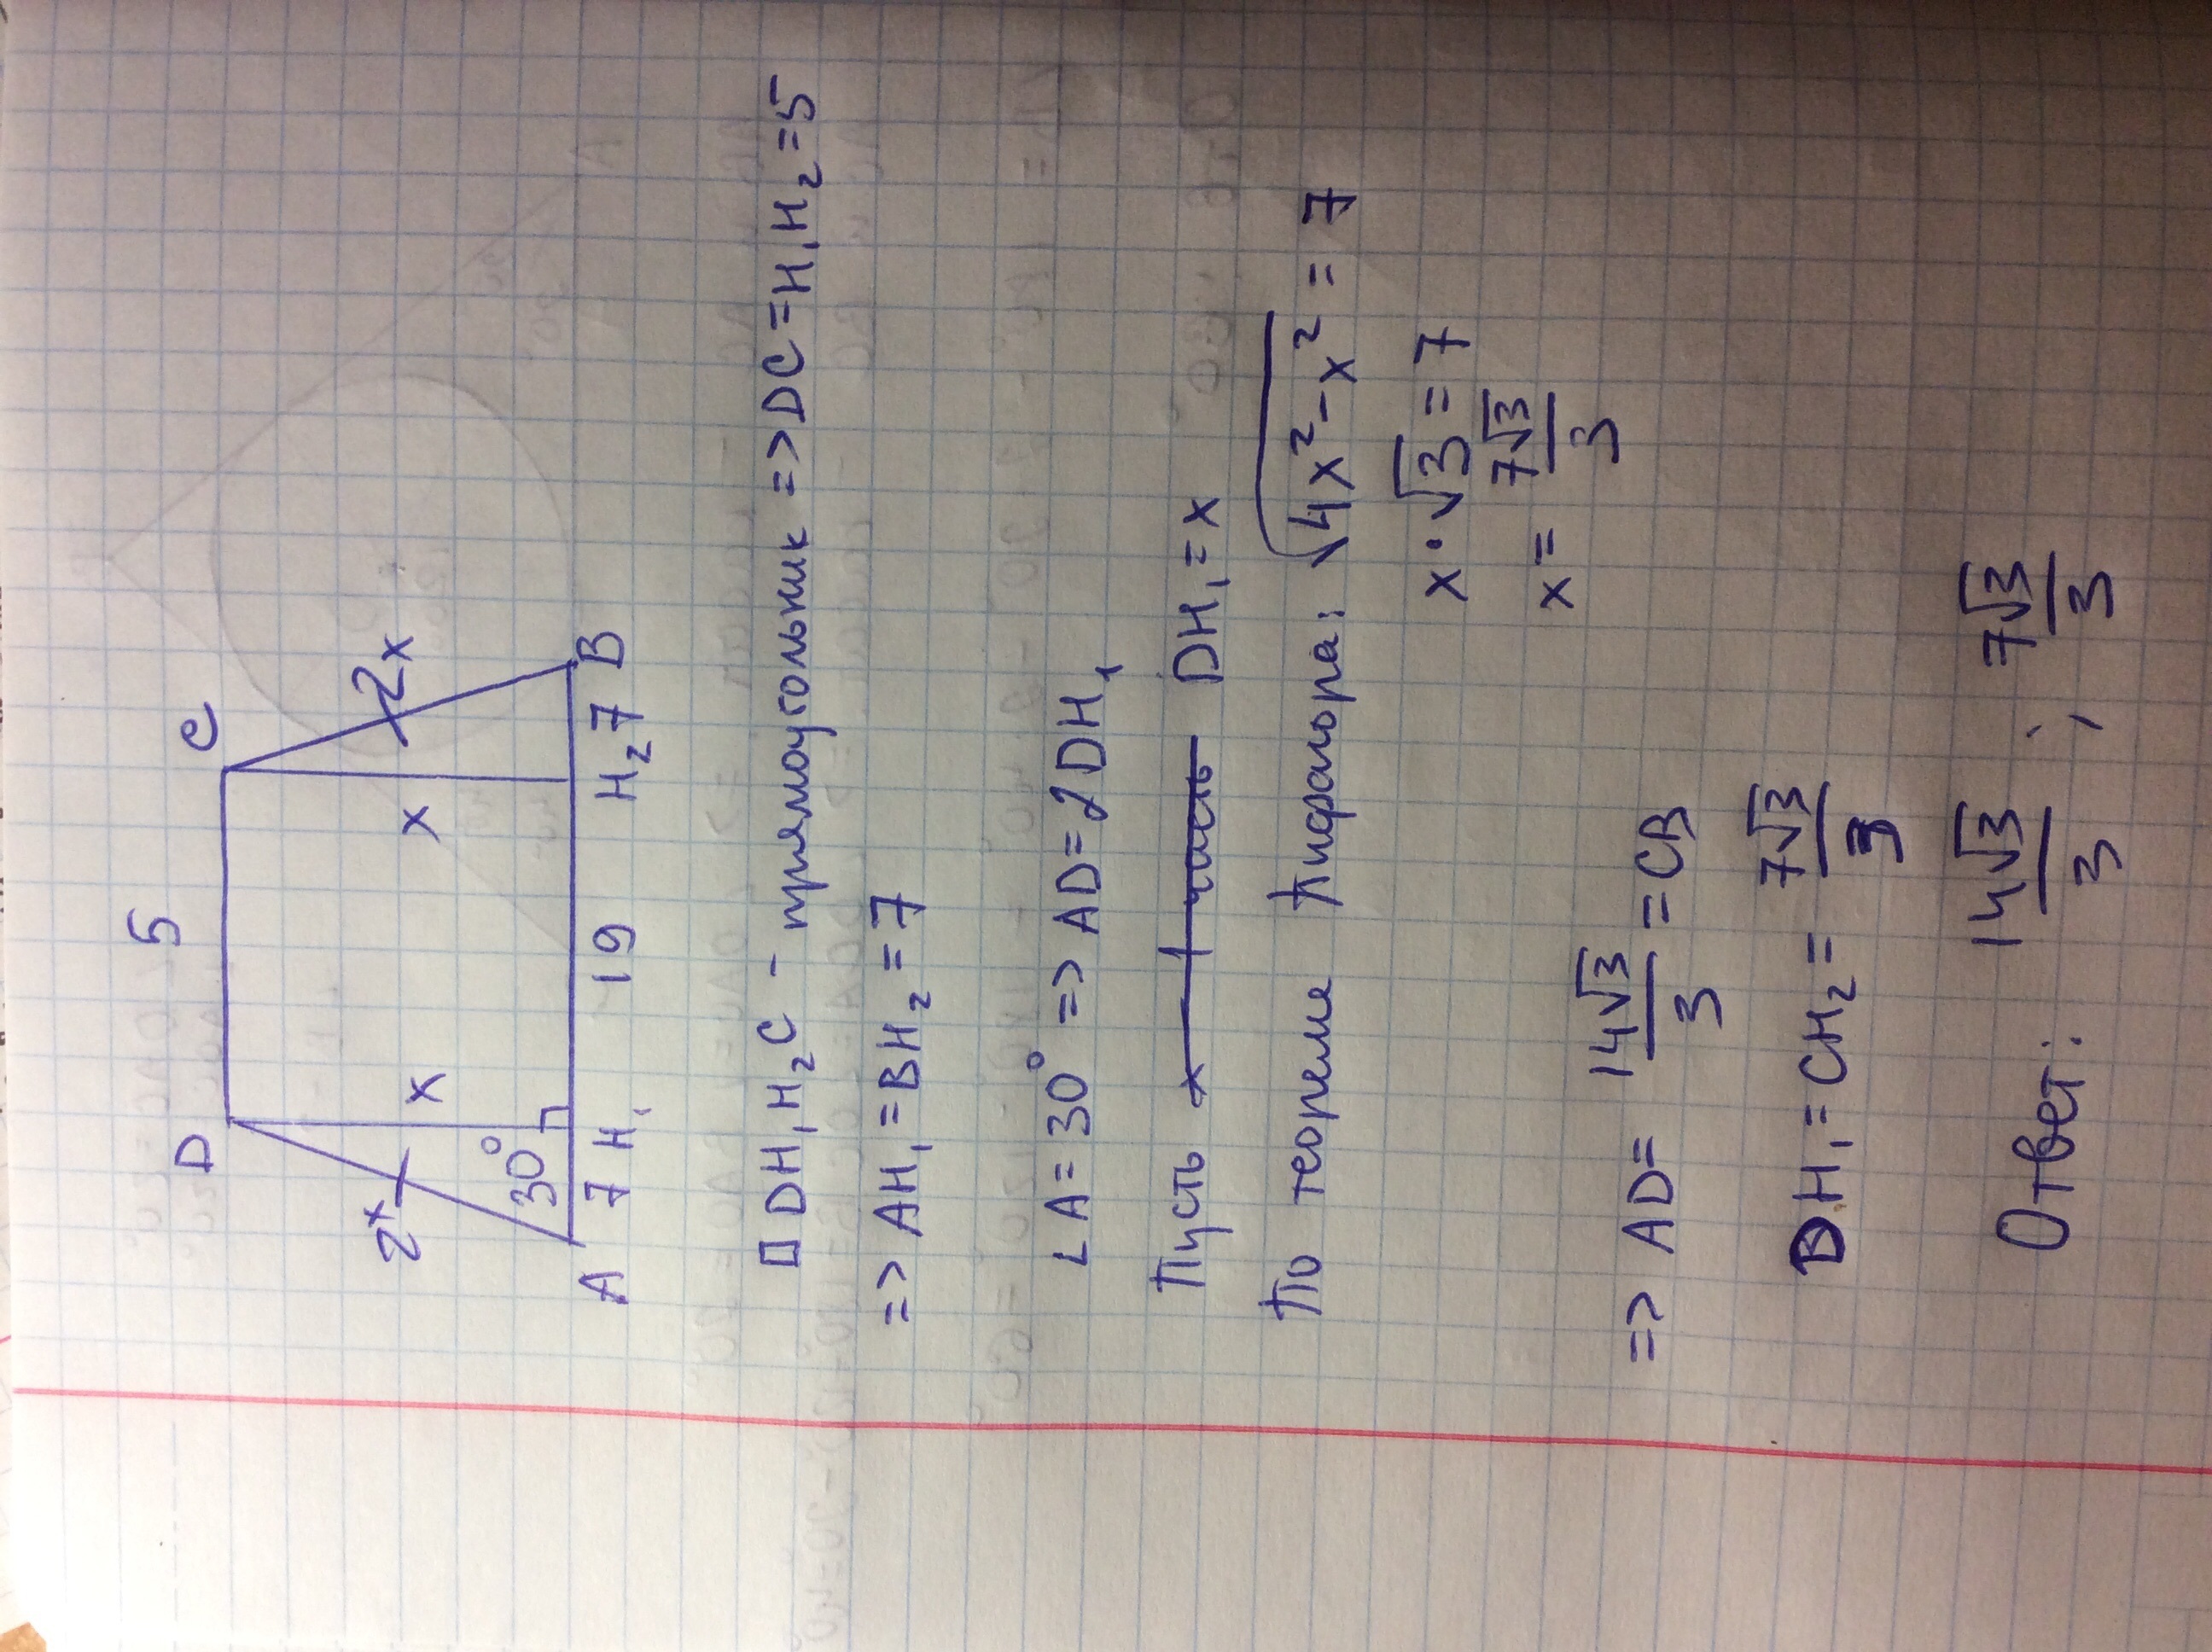 5
D C
2x x x 2x
30°
A 7 H₁ 19 H₂ 7 B
□ DH₁H₂C - прямоугольник => DC = H₁H₂ = 5
=> AH₁ = BH₂ = 7
∠A = 30° => AD = 2DH₁
Пусть DH₁ = x
По теореме Пифагора: √(4x² - x²) = 7
x · √3 = 7
x = 7√3/3
=> AD = 14√3/3 = CB
DH₁ = CH₂ = 7√3/3
Ответ: 14√3/3 ; 7√3/3